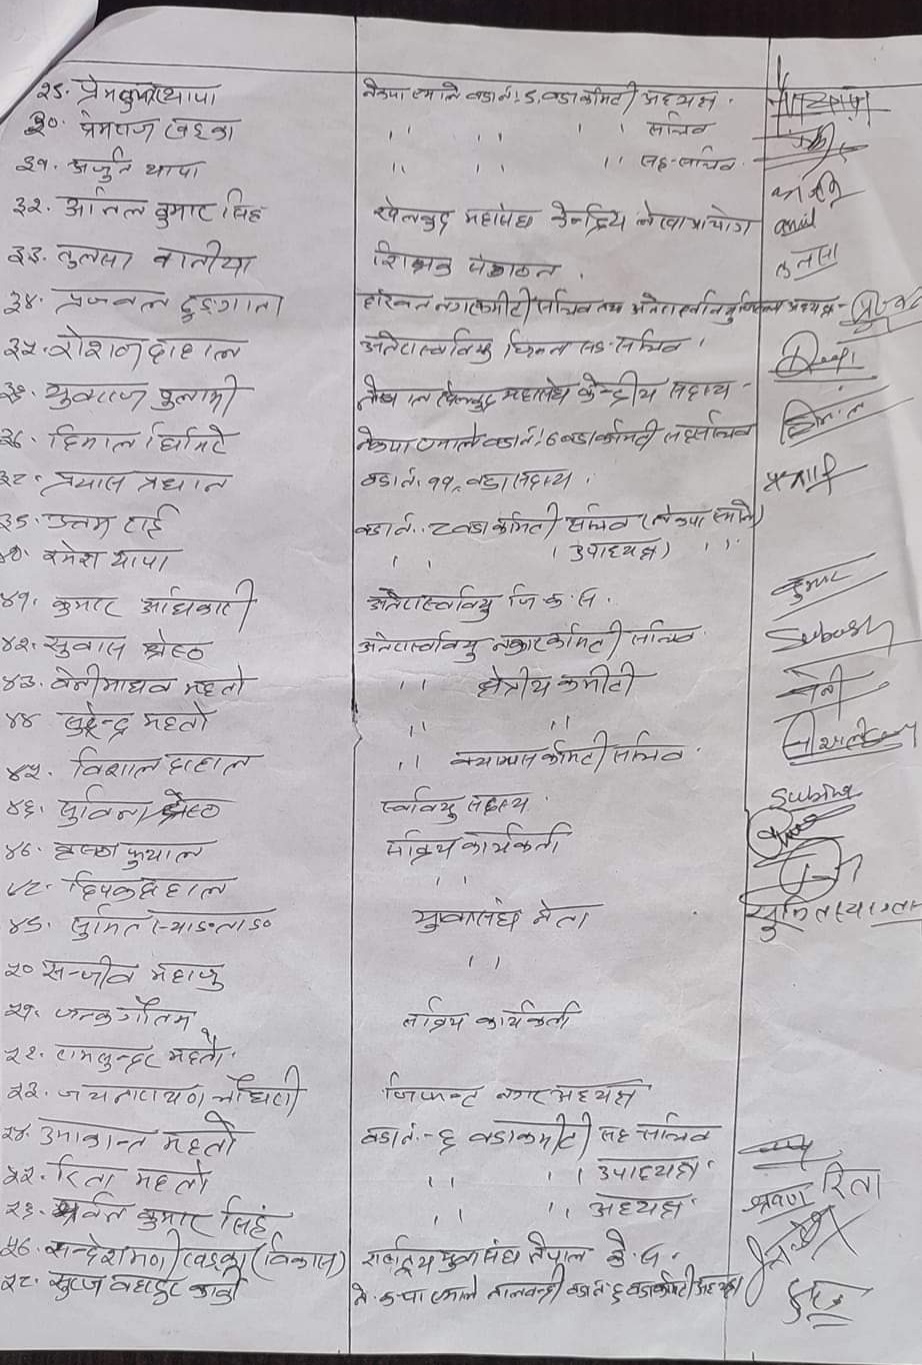 २९. प्रेमकुमार थापा नेकपा एमाले वडा नं. ९ वडा कमिटी अध्यक्ष
३०. प्रेमराज खड्का ,, ,, ,, ,, सचिव
३१. अर्जुन थापा ,, ,, ,, सह-सचिव
३२. अनिल कुमार सिंह खेलकुद महासंघ केन्द्रिय लेखा आयोग anil
३३. तुलसा वानीया शिक्षक संगठन तुलसा
३४. प्रज्वल ढुङ्गाना नगरकमिटी सचिव तथा अनेरास्ववियु अध्यक्ष
३५. रोशन दाहाल अनेरास्ववियु चितवन सह-सचिव
३६. युवराज पुलामी नेपाल खेलकुद महासंघ केन्द्रीय सदस्य
३७. हिमाल घिमिरे नेकपा एमाले वडा नं. ७ वडा कमिटी सहसचिव
३८. प्रयास प्रधान वडा नं. ११, वडा सदस्य
३९. उत्तम राई वडा नं. ८ वडा कमिटी सचिव (नेकपा एमाले)
४०. रमेश थापा ,, ,, (उपाध्यक्ष) ,, ,,
४१. कुमार अधिकारी अनेरास्ववियु जि.क.स. कुमार
४२. सुवास श्रेष्ठ अनेरास्ववियु नगर कमिटी सचिव Subash
४३. वेनीमाधव महतो ,, क्षेत्रीय कमीटी वेनी
४४ सुरेन्द्र महतो ,, ,,
४५. विशाल दाहाल ,, क्याम्पस कमिटी सचिव
४६. सुविना श्रेष्ठ स्ववियु सदस्य Subina
४७. कृष्ण फुयाल सक्रिय कार्यकर्ता
४८. दिपक दाहाल ,,
४९. सुमित स्याङताङ युवासंघ नेता सुमित स्याङताङ
५० सन्जीव महाजु ,,
५१. जनक गौतम सक्रिय कार्यकर्ता
५२. रामसुन्दर महतो
५३. जयनारायण चौधरी जिफन्ट नगर अध्यक्ष
५४. उमाकान्त महतो वडा नं.-६ वडा कमीटी सह सचिव
५५. रिता महतो ,, ,, उपाध्यक्ष रिता
५६. श्रवन कुमार सिंह ,, ,, अध्यक्ष श्रवण
५७. सन्देशमणी खड्का (विकास) राष्ट्रिय युवा संघ नेपाल के.स.
५८. सुरज बहादुर कार्की ने.क.पा एमाले वडा नं. ६ वडा कमिटी अध्यक्ष